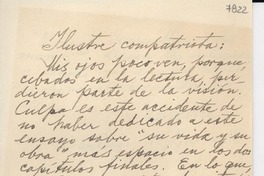 7822
Ilustre compatriota:
Mis ojos poco ven, porque,
cebados en la lectura, per-
dieron parte de la visión.
Culpa es este accidente de
no haber dedicado a este
ensayo sobre "su vida y su
obra" más espacio en los dos
capítulos finales. En lo que,